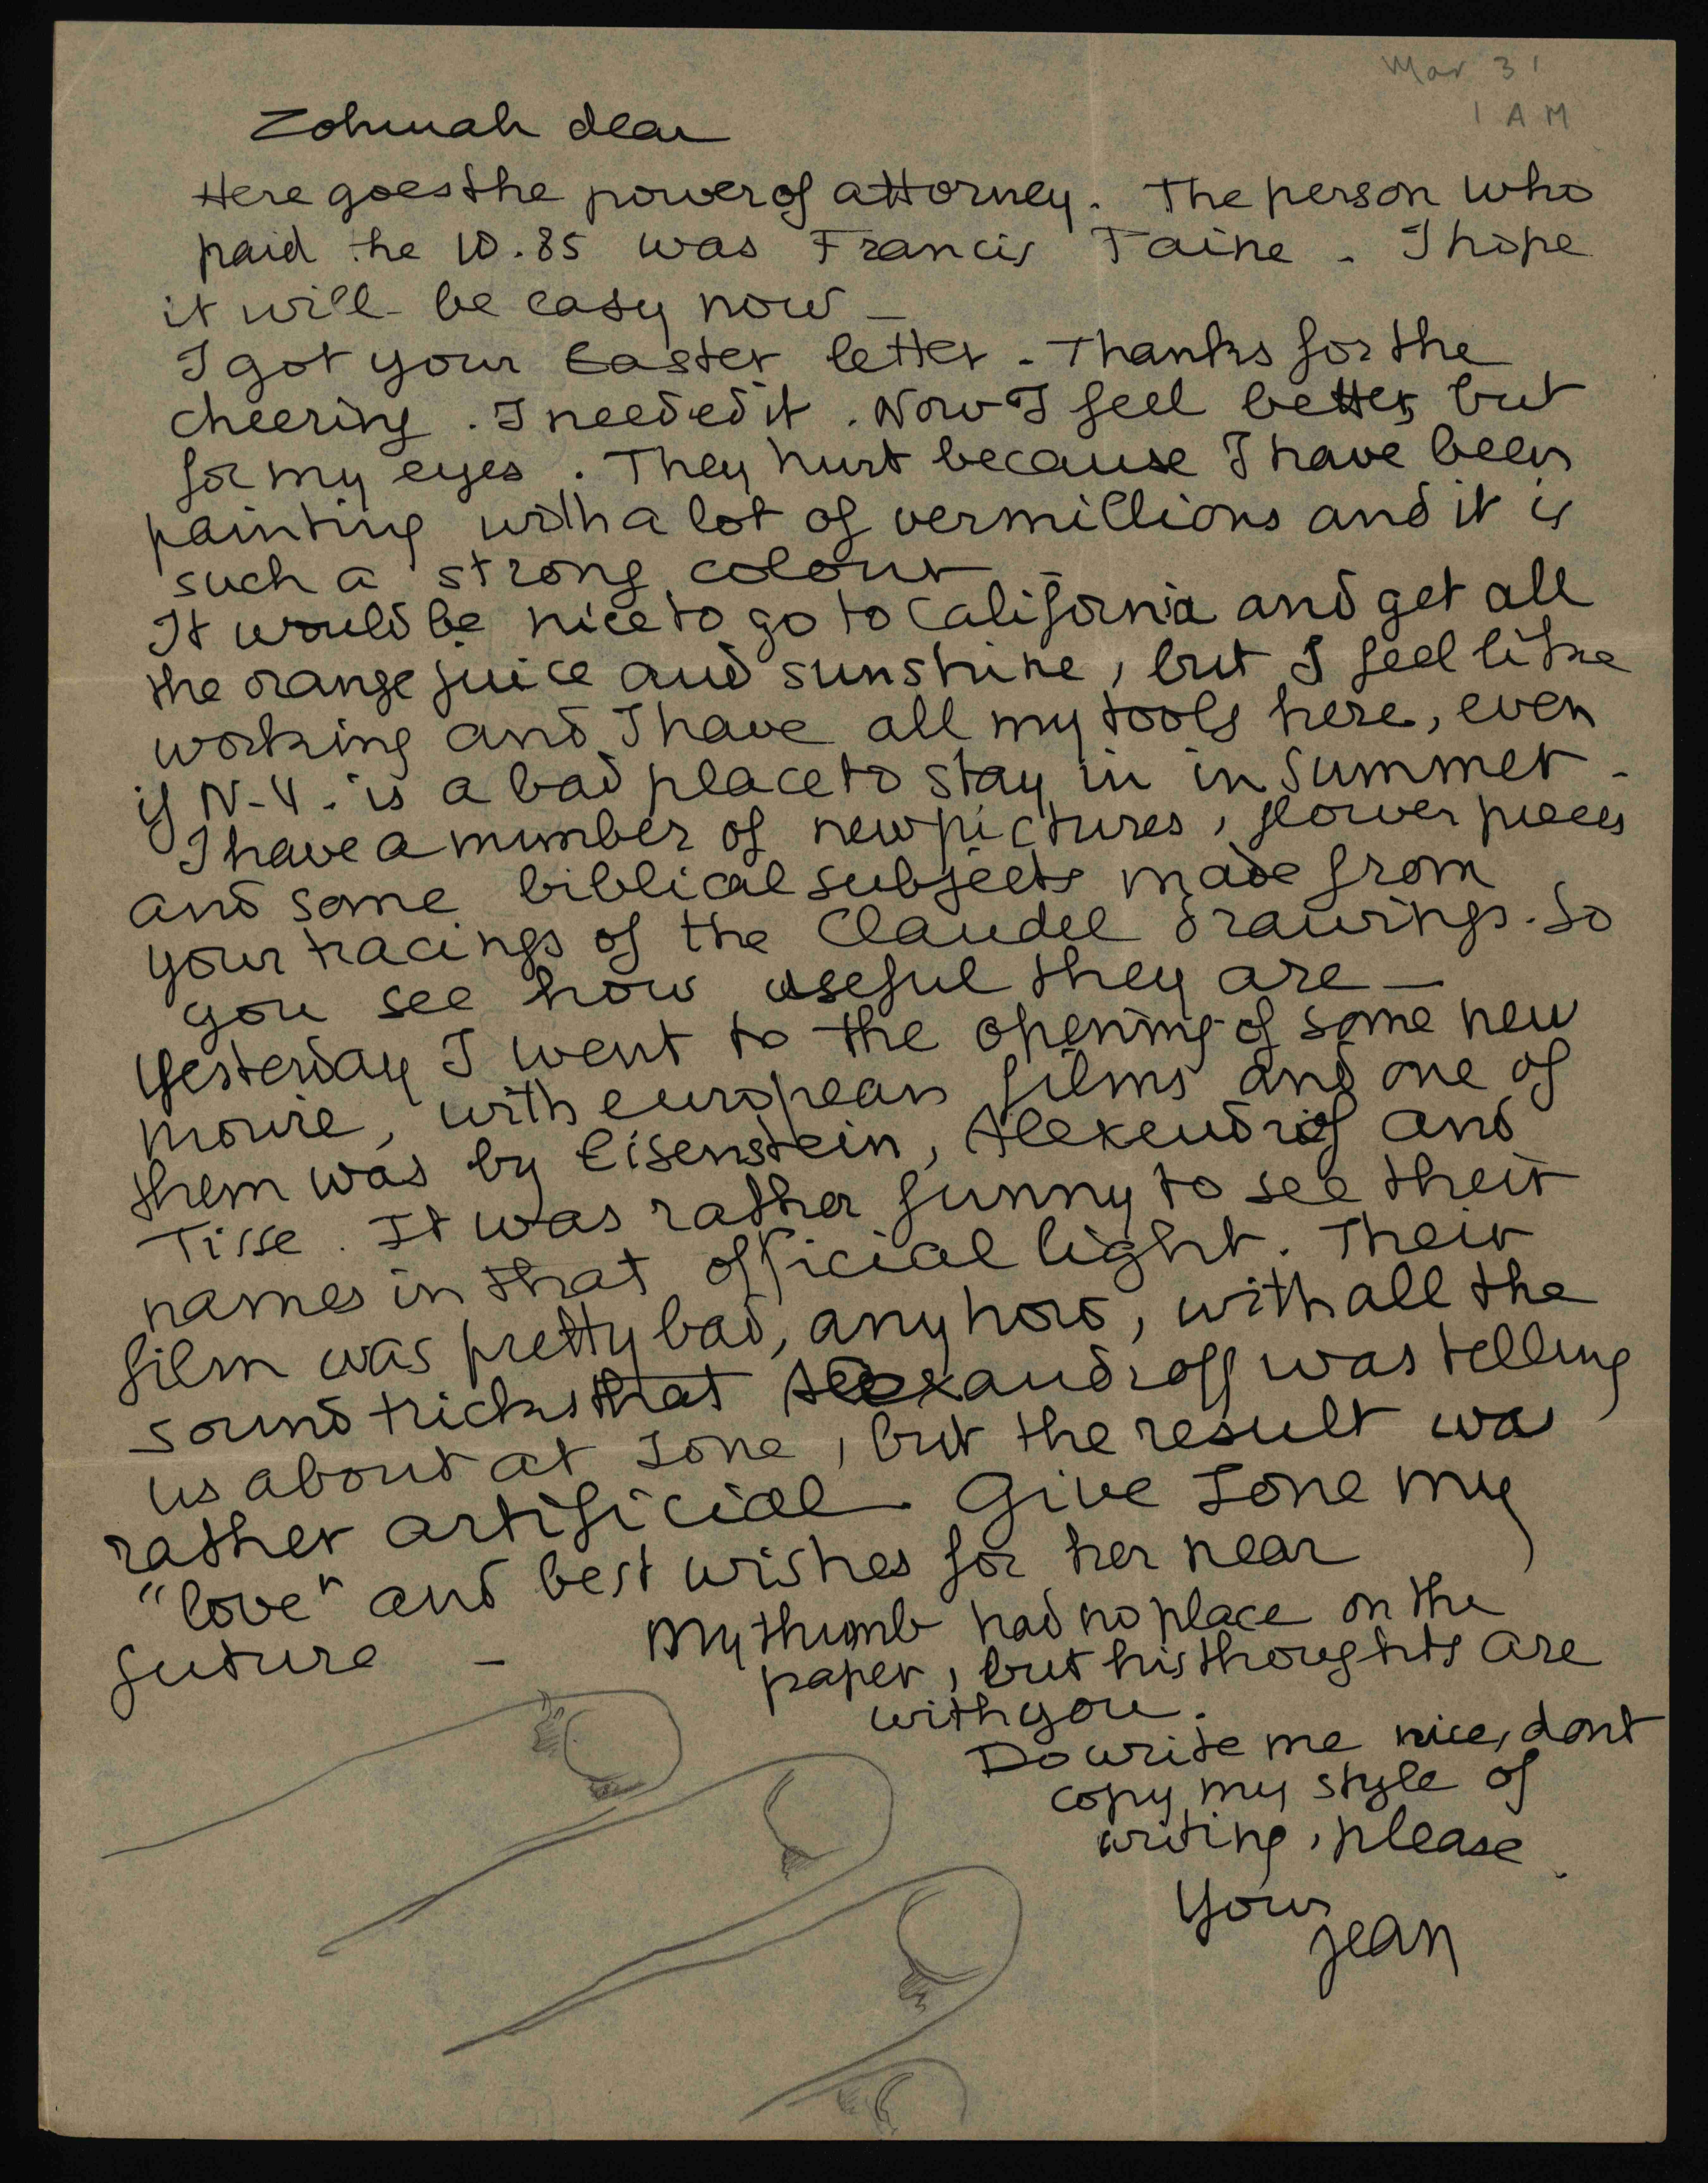 Mar 31
1 AM
Zohmah dear
Here goes the power of attorney. The person who
paid the 10.85 was Francis Taine - I hope
it will be easy now -
I got your Easter letter - Thanks for the
cheering. I needed it. Now I feel better, but
for my eyes. They hurt because I have been
painting with a lot of vermillions and it is
such a strong colour -
It would be nice to go to California and get all
the orange juice and sunshine, but I feel like
working and I have all my tools here, even
if N-Y. is a bad place to stay in in summer -
I have a number of new pictures, flower pieces
and some biblical subjects made from
your tracings of the Claudel drawings. So
you see how useful they are -
Yesterday I went to the opening of some new
movie, with european films and one of
them was by Eisenstein, Alexendrof and
Tisse. It was rather funny to see their
names in that official light. Their
film was pretty bad, anyhow, with all the
sound tricks that Alexandroff was telling
us about at Ione, but the result was
rather artificial. Give Ione my
"love" and best wishes for her near
future -
My thumb had no place on the
paper, but his thoughts are
with you.
Do write me nice, dont
copy my style of
writing, please.
Your
jean